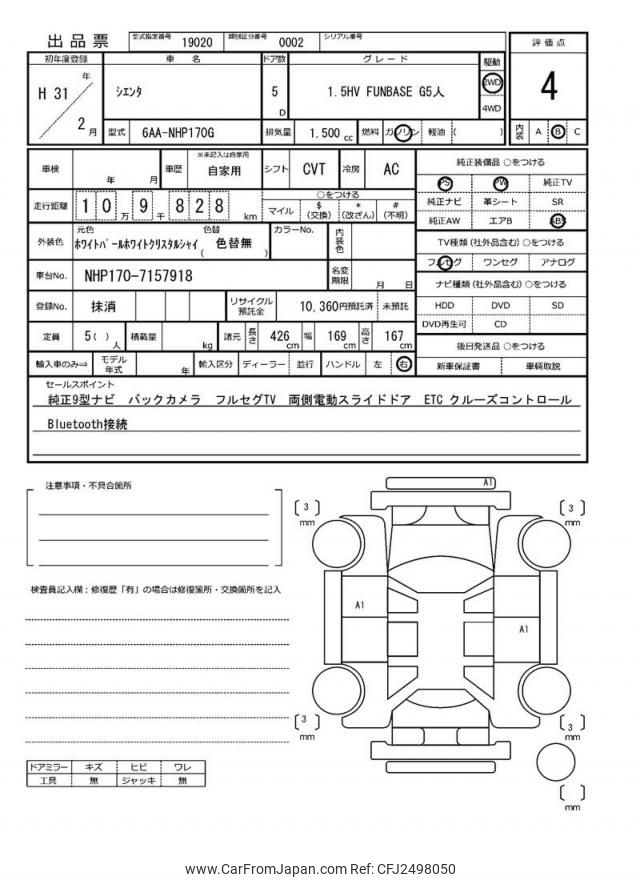 出品票 型式指定番号 19020 類別区分番号 0002 シリアル番号
初年度登録 車 名 ドア数 グレード 駆動 評価点
H 31 年 2 月 シエンタ 5 D 1.5HV FUNBASE G5人 2WD 4WD 4
型式 6AA-NHP170G 排気量 1,500 cc 燃料 ガソリン 軽油 ( ) 内装 A B C
車検 年 月 車歴 ※未記入は自家用 自家用 シフト CVT 冷房 AC
純正装備品 ○をつける
PS PW 純正TV
純正ナビ 革シート SR
純正AW エアB ABS
走行距離 1 0 万 9 千 8 2 8 km ○をつける
マイル $ (交換) * (改ざん) # (不明)
外装色 元色 ホワイトパールホワイトクリスタルシャイ 色替 ( 色替無 ) カラーNo. 内装色
TV種類 (社外品含む) ○をつける
フルセグ ワンセグ アナログ
車台No. NHP170-7157918 名変期限 月 日
ナビ種類 (社外品含む) ○をつける
HDD DVD SD
DVD再生可 CD
登録No. 抹消 リサイクル預託金 10,360円預託済 未預託
定員 5 ( ) 人 積載量 kg 諸元 長さ 426 cm 幅 169 cm 高さ 167 cm
後日発送品 ○をつける
新車保証書 車輌取説
輸入車のみ⇒ モデル年式 年 輸入区分 ディーラー 並行 ハンドル 左 右
セールスポイント
純正9型ナビ バックカメラ フルセグTV 両側電動スライドドア ETC クルーズコントロール
Bluetooth接続
注意事項・不具合箇所
検査員記入欄：修復歴「有」の場合は修復箇所・交換箇所を記入
A1
3 mm
3 mm
A1
A1
3 mm
3 mm
mm
ドアミラー キズ ヒビ ワレ
工具 無 ジャッキ 無
www.CarFromJapan.com Ref: CFJ2498050